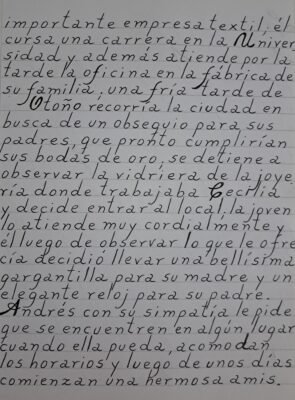 importante empresa textil, él
cursa una carrera en la Univer
sidad y además atiende por la
tarde la oficina en la fábrica de
su familia, una fría tarde de
Otoño recorría la ciudad en
busca de un obsequio para sus
padres, que pronto cumplirían
sus bodas de oro, se detiene a
observar la vidriera de la joye
ría donde trabajaba Cecilia
y decide entrar al local, la joven
lo atiende muy cordialmente y
él luego de observar lo que le ofre
cía decidió llevar una bellísima
gargantilla para su madre y un
elegante reloj para su padre.
Andrés con su simpatía le pide
que se encuentren en algún lugar
cuando ella pueda, acomodan
los horarios y luego de unos días
comienzan una hermosa amis.